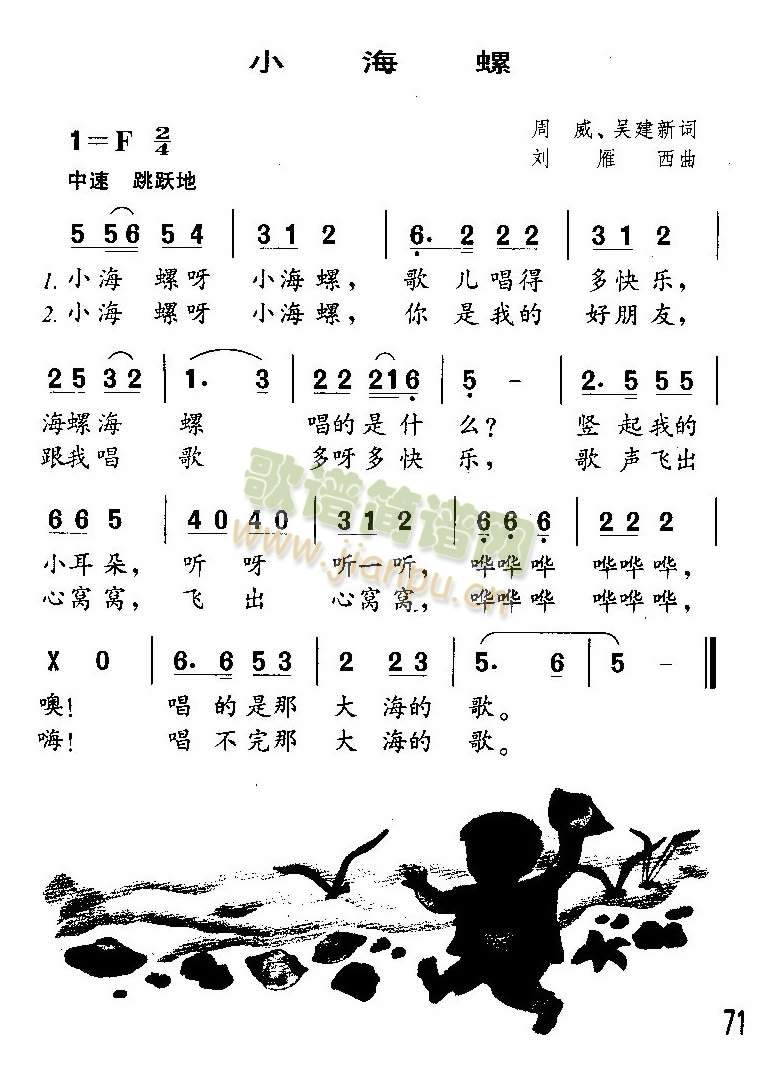 小 海 螺
1=F 2/4
周 威、吴建新词
刘 雁 西曲
中速 跳跃地
5 56 54 | 31 2 | 6. 2 22 | 31 2 |
1. 小海 螺呀 小海螺， 歌儿唱得 多快乐，
2. 小海 螺呀 小海螺， 你是我的 好朋友，
25 32 | 1. 3 | 22 216 | 5 - | 2. 5 55 |
海螺海 螺 唱的是什 么？ 竖起我的
跟我唱 歌 多呀多快 乐， 歌声飞出
66 5 | 40 40 | 31 2 | 6 6 6 | 2 2 2 |
小耳朵， 听 呀 听一听， 哗哗哗 哗哗哗
心窝窝， 飞 出 心窝窝， 哗哗哗 哗哗哗
X 0 | 6. 6 53 | 2 23 | 5. 6 | 5 - ‖
噢！ 唱的是那 大海的 歌。
嗨！ 唱不完那 大海的 歌。
歌谱简谱网
www.jianpu.cn
71